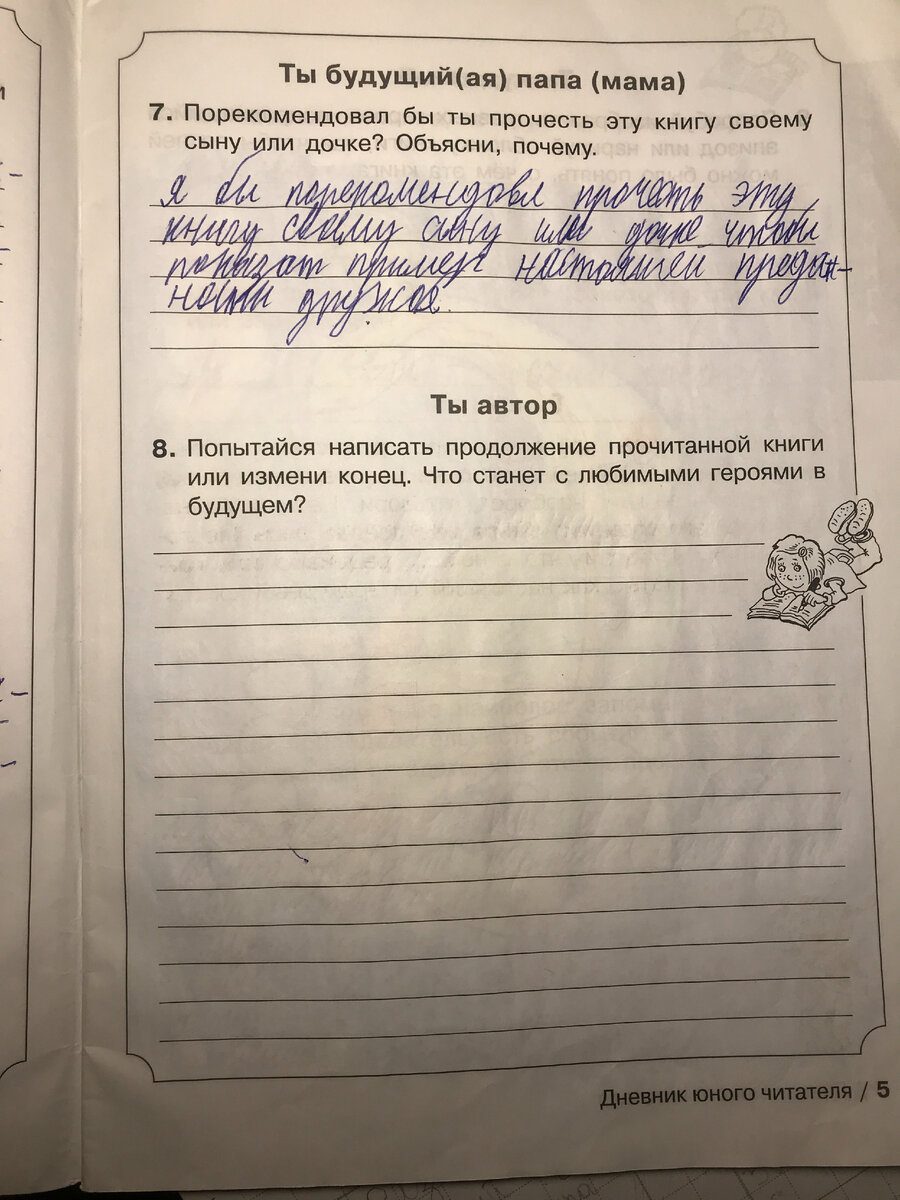 Ты будущий(ая) папа (мама)
7. Порекомендовал бы ты прочесть эту книгу своему
сыну или дочке? Объясни, почему.
я бы порекомендовл прочесть эту
книгу своему сыну или дочке чтобы
показат пример настоящей предан-
ности дружбе.
Ты автор
8. Попытайся написать продолжение прочитанной книги
или измени конец. Что станет с любимыми героями в
будущем?
Дневник юного читателя / 5